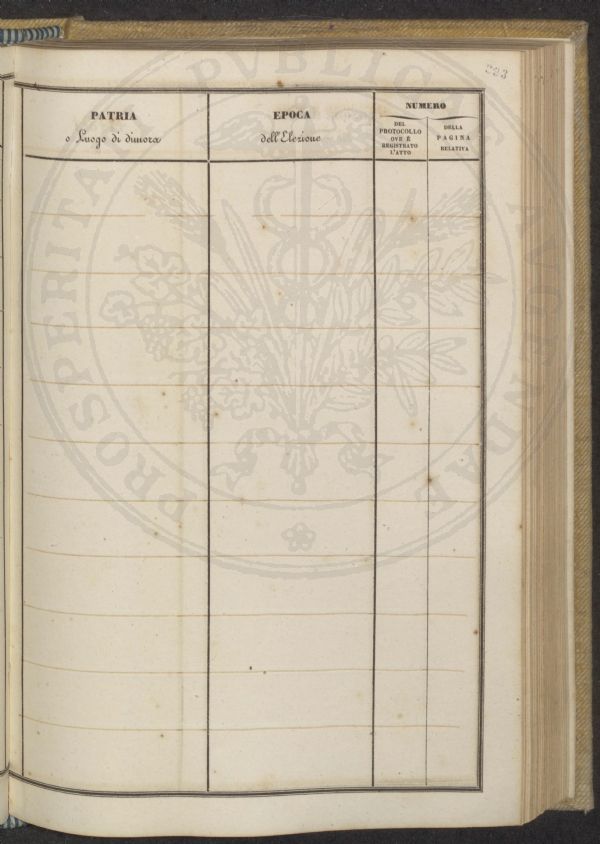 223
PATRIA
o Luogo di dimora
EPOCA
dell'Elezione
NUMERO
DEL
PROTOCOLLO
OVE È
REGISTRATO
L'ATTO
DELLA
PAGINA
RELATIVA
PROSPERITATI PVBLICAE AVGENDAE